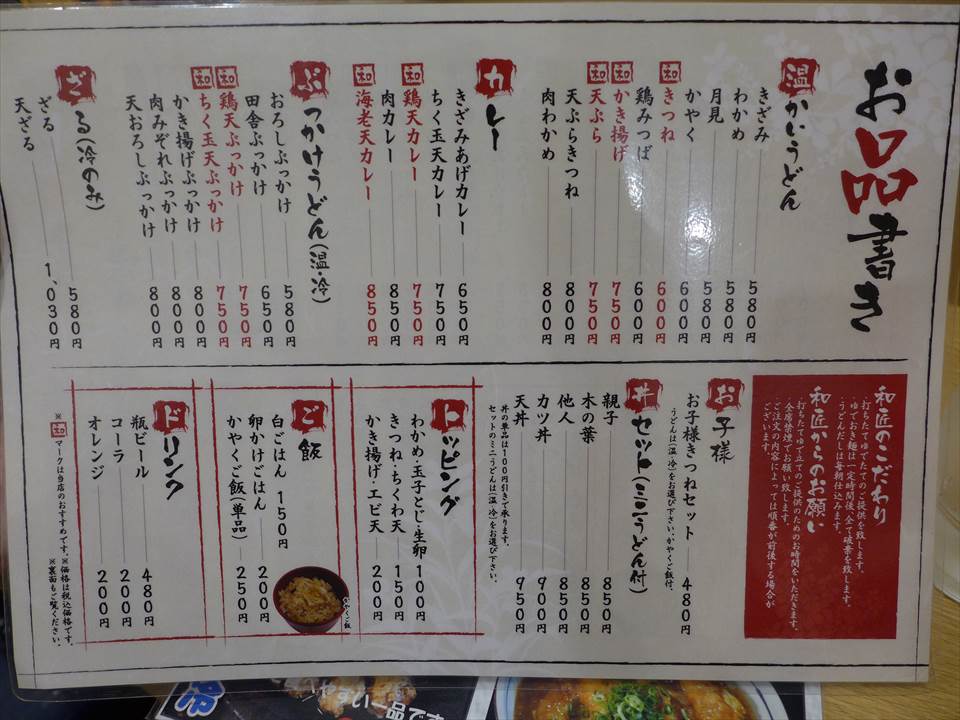 お品書き
温かいうどん
きざみ 580円
わかめ 580円
月見 580円
かやく 600円
和 きつね 600円
鶏みつば 600円
和 かき揚げ 750円
和 天ぷら 750円
天ぷらきつね 800円
肉わかめ 800円
カレー
きざみあげカレー 650円
ちく玉天カレー 750円
和 鶏天カレー 850円
肉カレー 850円
和 海老天カレー 850円
ぶっかけうどん(温・冷)
おろしぶっかけ 580円
田舎ぶっかけ 650円
和 鶏天ぶっかけ 750円
和 ちく玉天ぶっかけ 750円
かき揚げぶっかけ 800円
肉みぞれぶっかけ 800円
天おろしぶっかけ 800円
ざる(冷のみ)
ざる 580円
天ざる 1,030円
和匠のこだわり
打ちたてゆでたてのご提供を致します。
ゆでおき麺は一定時間後、全て破棄を致します。
うどんだしは毎朝仕込みます。
和匠からのお願い
打ちたてゆで立てのご提供のためのお時間をいただきます。
全席禁煙でお願い致します。
ご注文の内容によっては順番が前後する場合が
ございます。
お子様
お子様きつねセット 480円
うどんは(温・冷)をお選び下さい、かやくご飯付。
丼セット(ミニうどん付)
親子 850円
木の葉 850円
他人 850円
カツ丼 900円
天丼 950円
丼の単品は100円引きで承ります。
セットのミニうどんは(温・冷)をお選び下さい。
トッピング
わかめ・玉子とじ・生卵 100円
きつね・ちくわ天 150円
かき揚げ・エビ天 200円
ご飯
白ごはん 150円
卵かけごはん 200円
かやくご飯(単品) 250円
かやくご飯
ドリンク
瓶ビール 480円
コーラ 200円
オレンジ 200円
※和マークは当店のおすすめです。※価格は税込価格です。
※裏面もご覧ください。